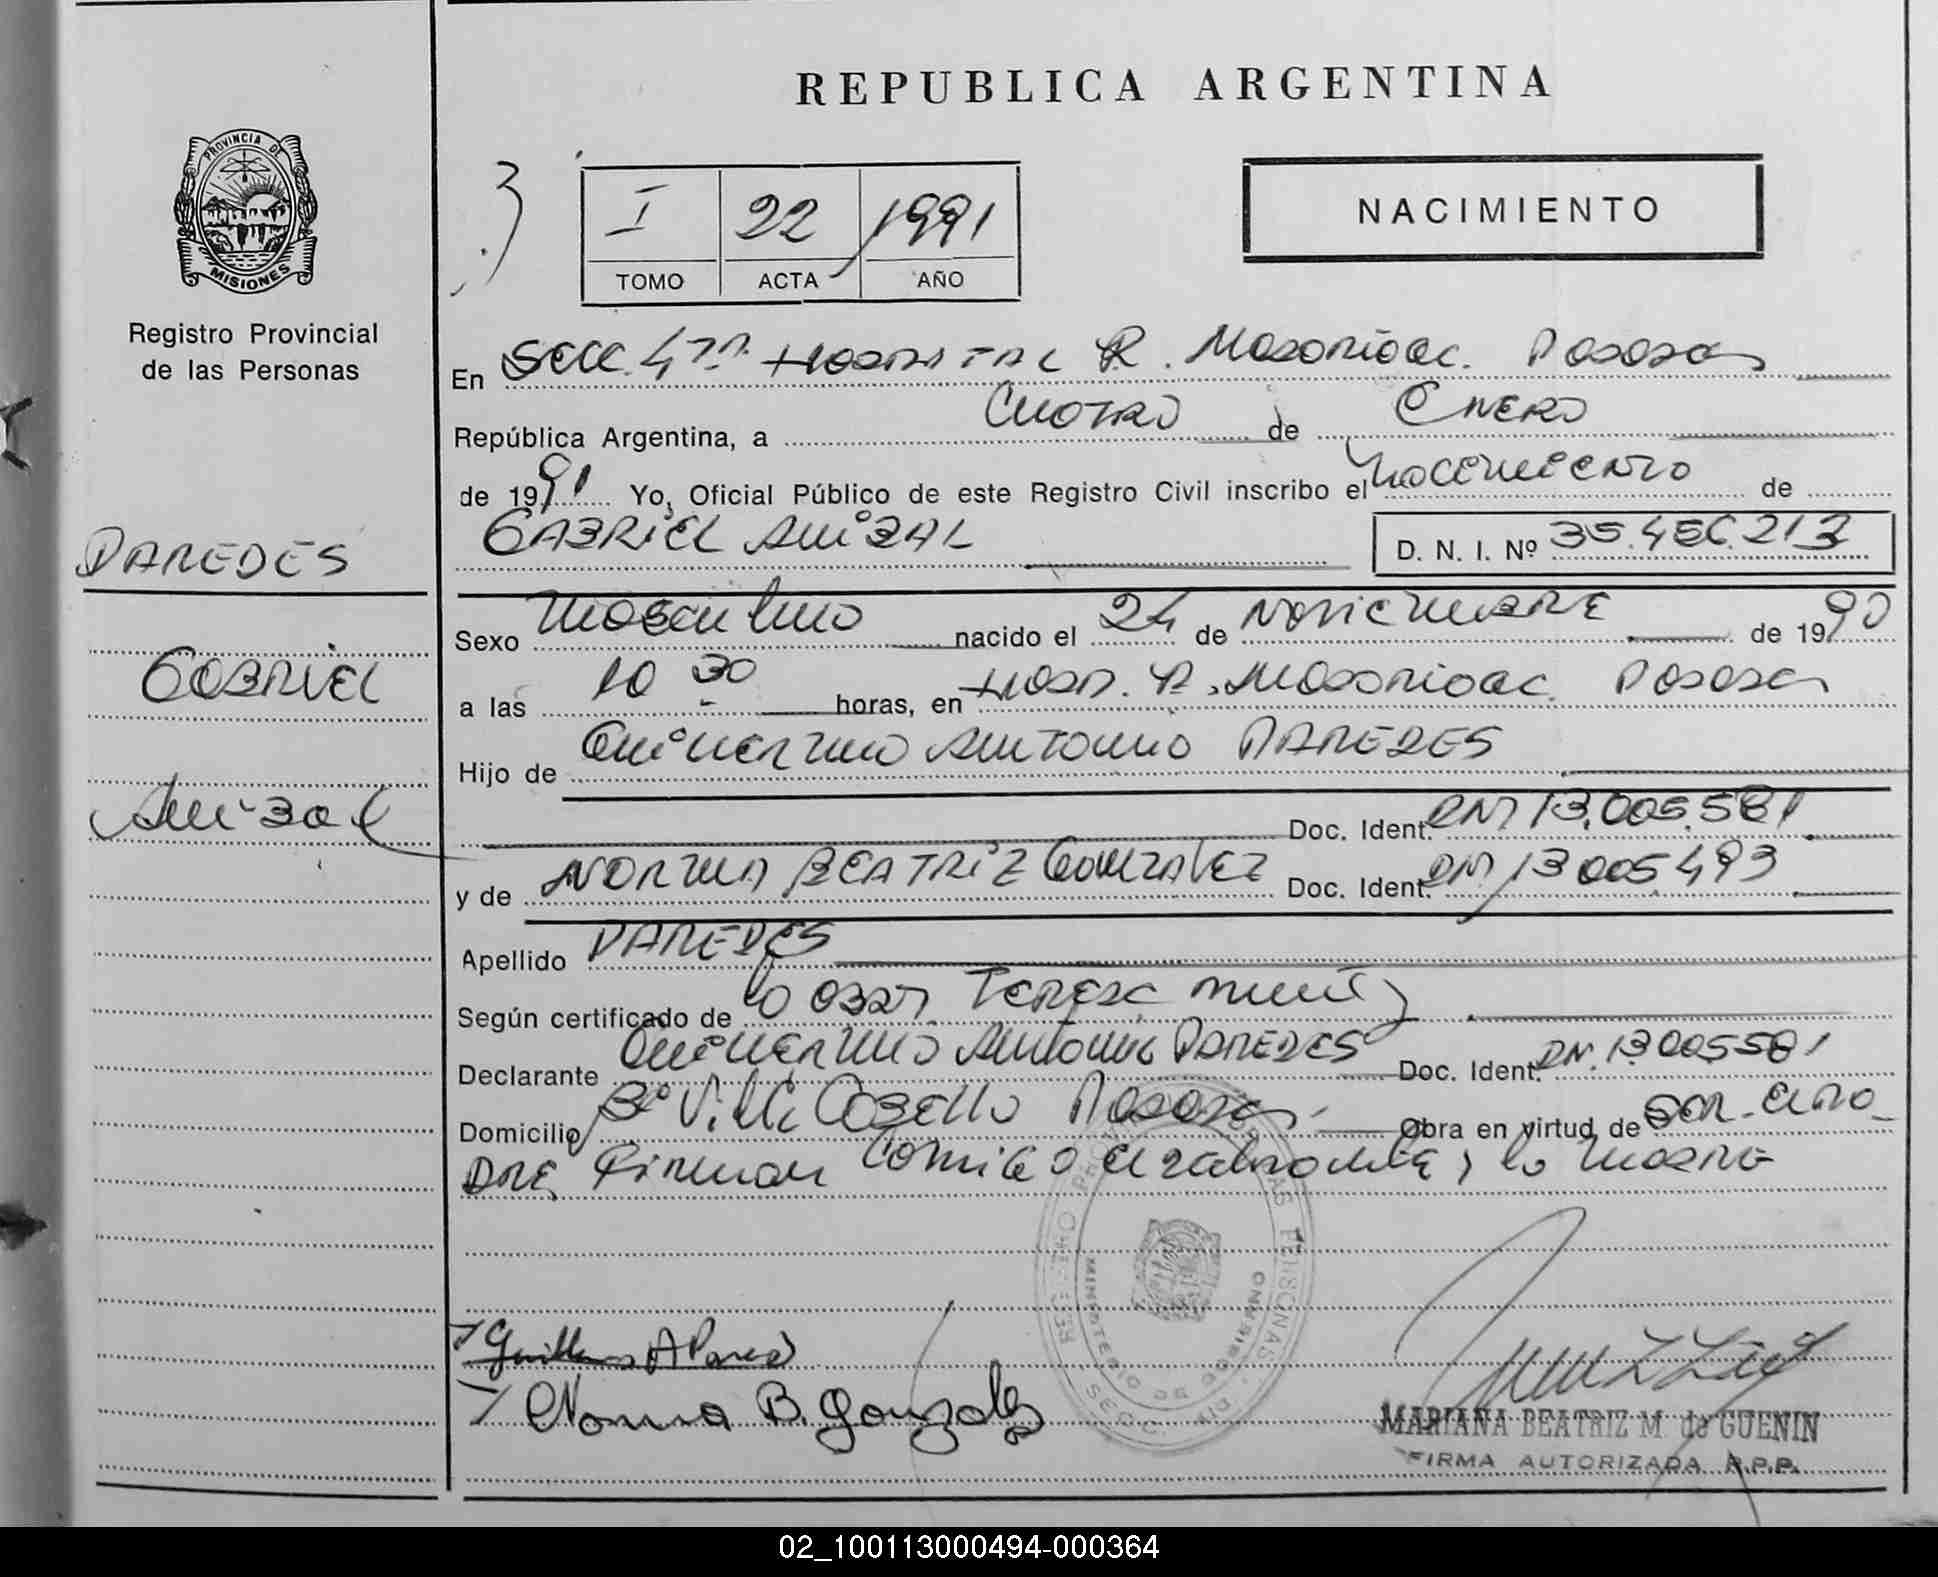 REPUBLICA ARGENTINA
PROVINCIA DE
MISIONES
Registro Provincial
de las Personas
I 22 1991
TOMO ACTA AÑO
NACIMIENTO
En Secc. 4ta Hospital R. Madariaga. Posadas
República Argentina, a Cuatro de Enero
de 1991 Yo, Oficial Público de este Registro Civil inscribo el Nacimiento de
GABRIEL ANIBAL
D. N. I. Nº 35.456.213
PAREDES
Gabriel
Anibal
Sexo Masculino nacido el 24 de Noviembre de 1990
a las 10 30 horas, en Hosp. R. Madariaga. Posadas
Hijo de Guillermo Antonio PAREDES
Doc. Ident. DNI 13.005.581
y de NORMA BEATRIZ GONZALEZ Doc. Ident. DNI 13005.493
Apellido PAREDES
Según certificado de la Obst. Teresa
Declarante Guillermo Antonio PAREDES Doc. Ident. DNI. 13005581
Domicilio Bº Villa Cabello Posadas Obra en virtud de ser el Pa
DRE, Firman Conmigo el declarante y la madre
Guillermo A Paredes
Norma B. Gonzalez
MARIANA BEATRIZ M. de GUENIN
FIRMA AUTORIZADA R.P.P.
02_100113000494-000364